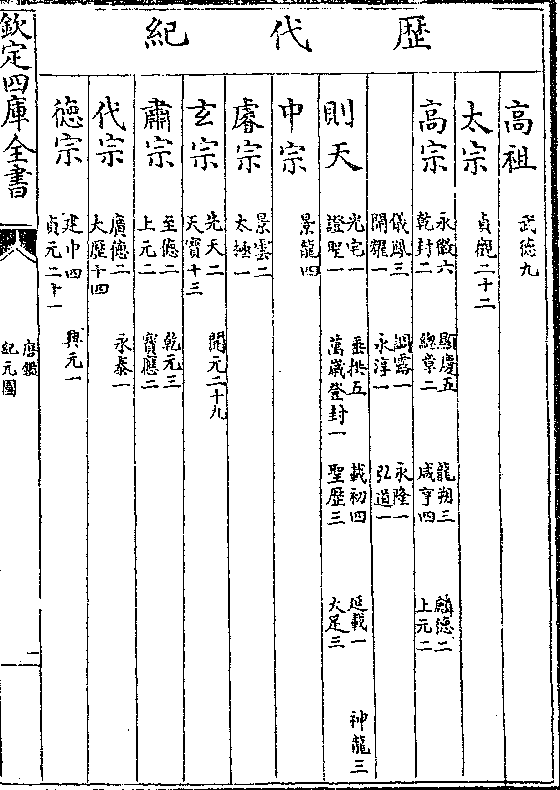 歴代紀
高祖 武徳九
太宗 貞觀二十二
高宗 永徽六 顯慶五 龍朔三 麟徳二
乾封二 總章二 咸亨四 上元二
儀鳳三 調露一 永隆一
開耀一 永淳一 弘道一
則天 光宅一 垂拱五 載初四 延載一 神龍三
證聖一 萬歳登封一 聖歴三 大足三
中宗 景龍四
睿宗 景雲二
太極一
玄宗 先天二 開元二十九
天寳十三
肅宗 至徳二 乾元三
上元二 寳應二
代宗 廣徳二 永泰一
大歴十四
徳宗 建中四 興元一
貞元二十一
欽定四庫全書
唐鑑
紀元圖
二